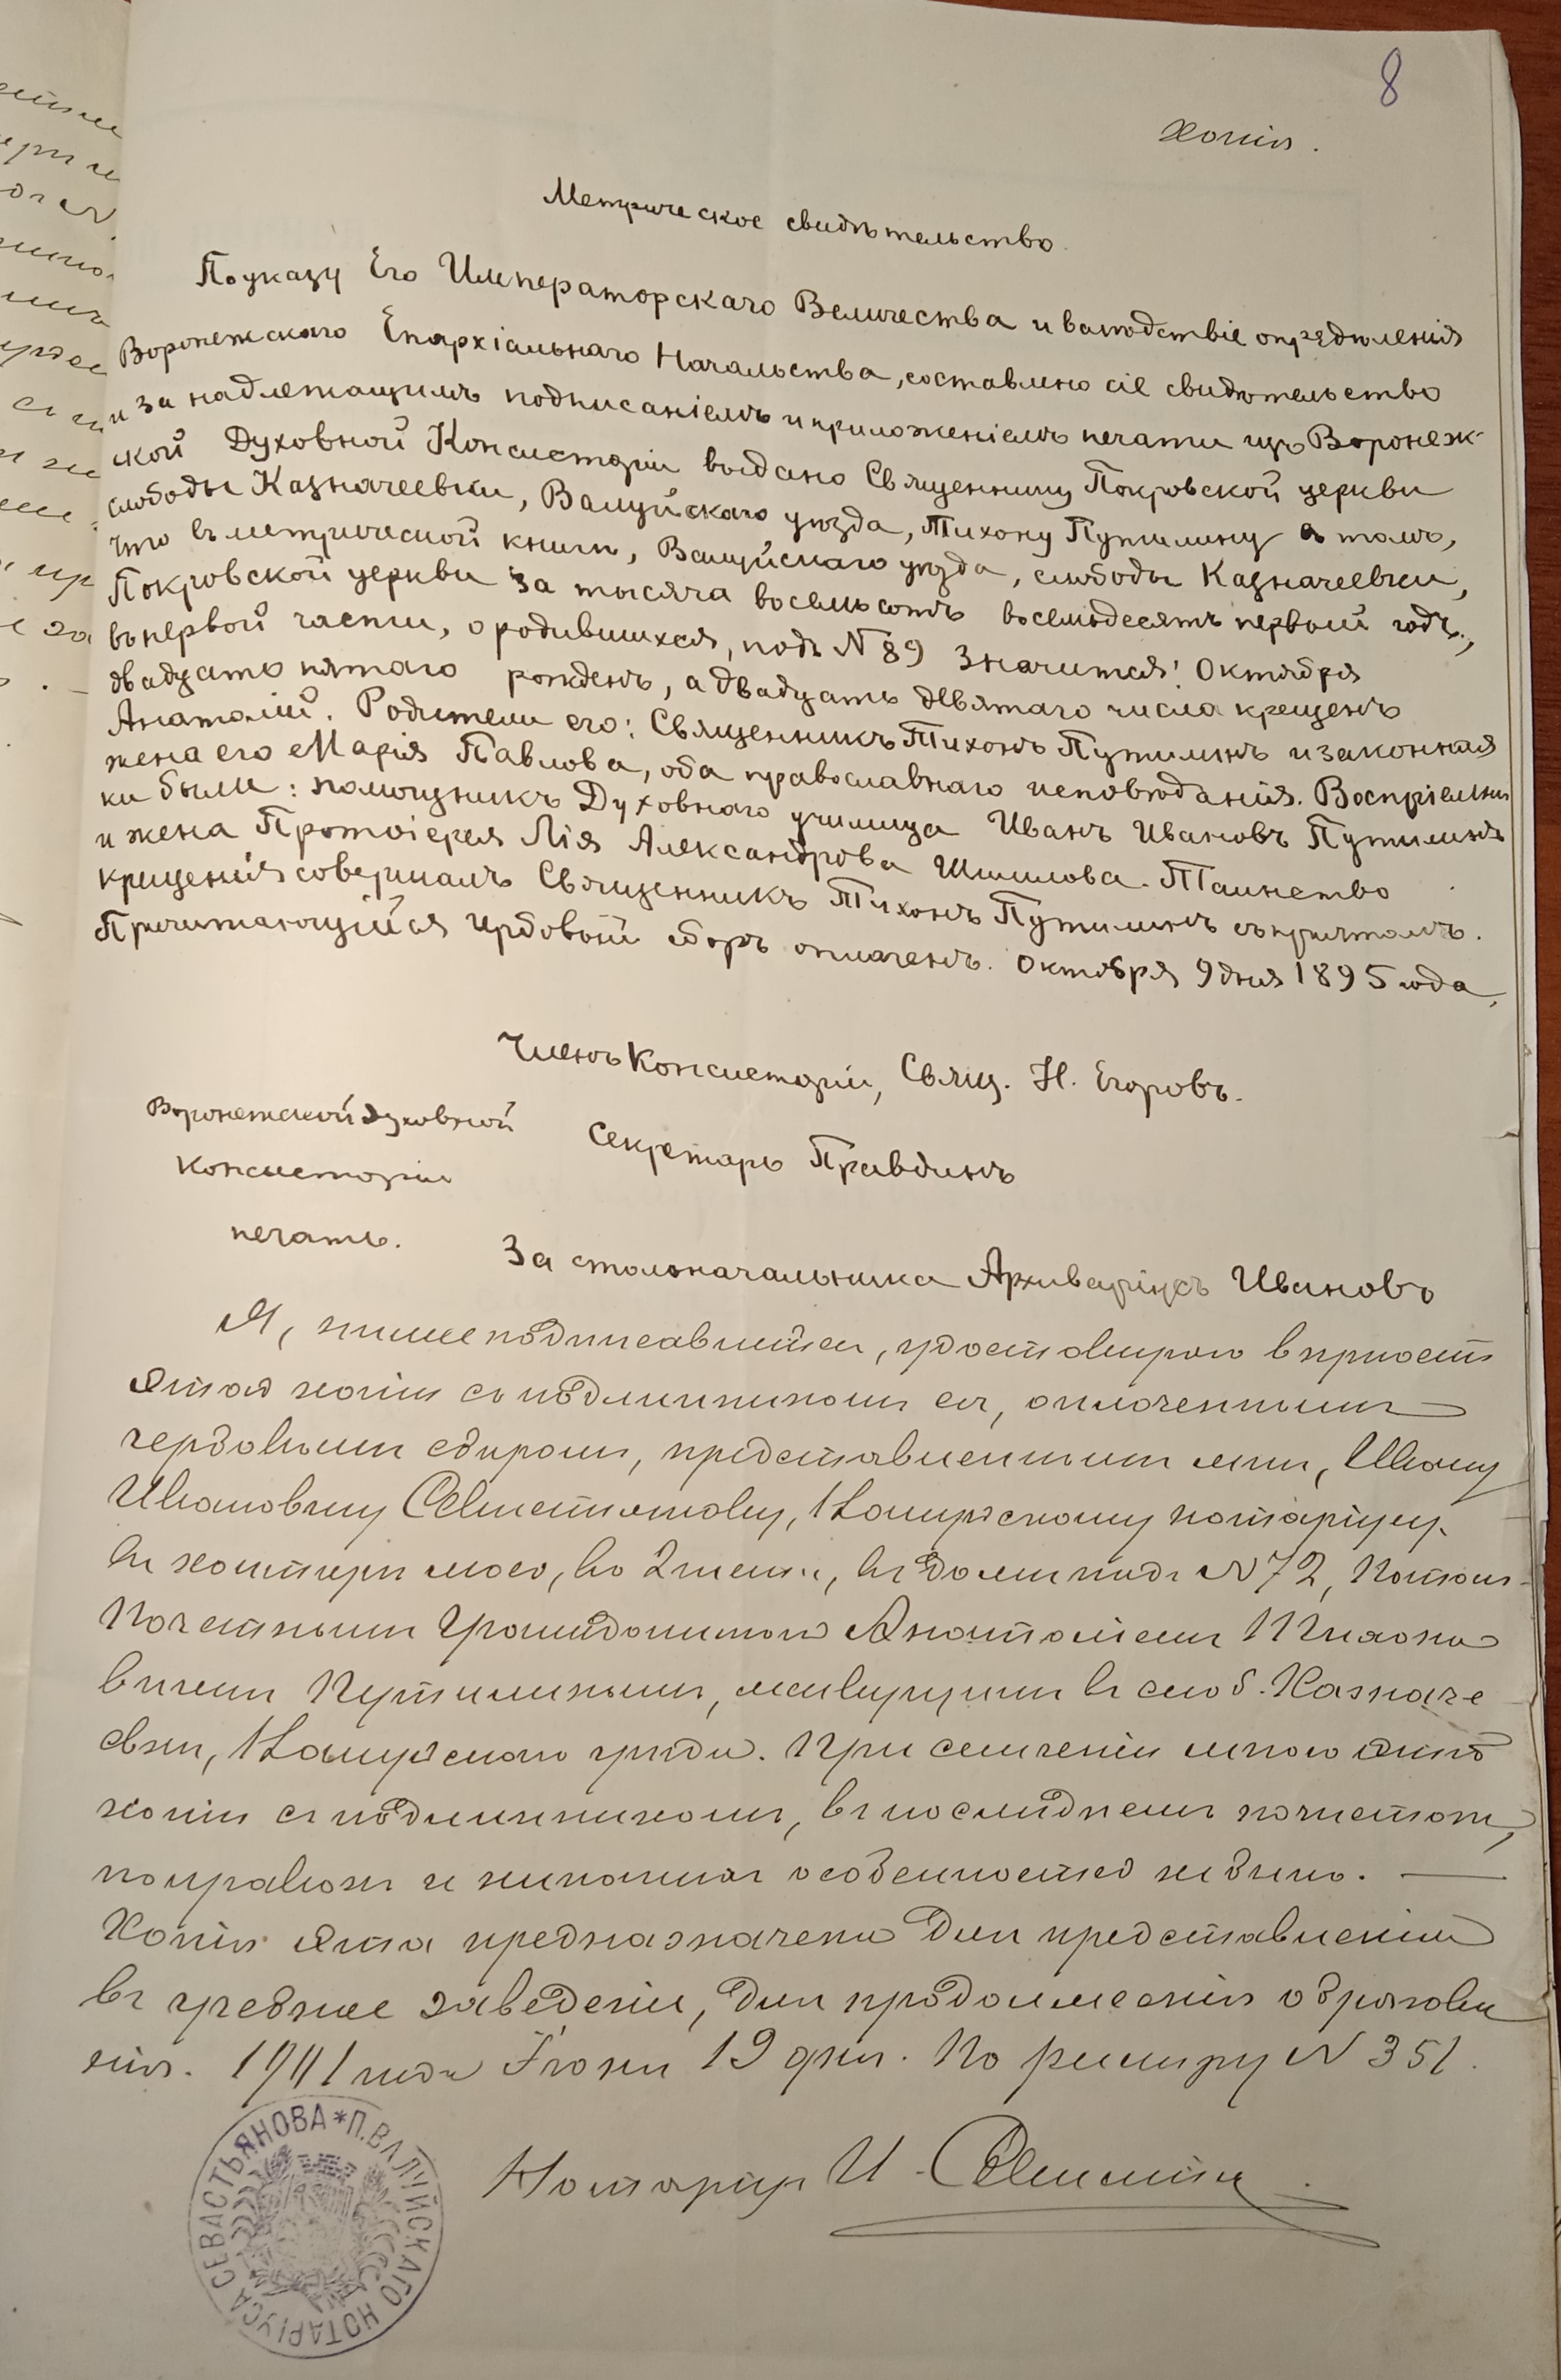 8
Копія.
Метрическое свидѣтельство.
По указу Его Императорскаго Величества и вслѣдствіе опредѣленія
Воронежскаго Епархіальнаго Начальства, составлено сіе свидѣтельство
и за надлежащимъ подписаніемъ и приложеніемъ печати изъ Воронеж-
ской Духовной Консисторіи выдано Священнику Покровской церкви
слободы Казначеевки, Валуйскаго уѣзда, Тихону Путилину в томъ,
что въ метрической книги, Валуйскаго уѣзда, слободы Казначеевки,
Покровской церкви за тысяча восемьсотъ восемьдесятъ первый годъ,
въ первой части, о родившихся, подъ № 89 значится: Октября
двадцать пятаго рожденъ, а двадцать девятаго числа крещенъ
Анатолій. Родители его: Священникъ Тихонъ Путилинъ и законная
жена его Марія Павлова, оба православнаго исповѣданія. Воспріемни
ки были: помощникъ Духовнаго училища Иванъ Ивановъ Путилинъ
и жена Протоіерея Лія Александрова Шишлова. Таинство
крещенія совершалъ Священникъ Тихонъ Путилинъ съ причтомъ.
Причитающійся гербовый сборъ оплаченъ. Октября 9 дня 1895 года.
Членъ Консисторіи, Свящ. Н. Егоровъ.
Воронежской Духовной
Консисторіи
печать.
Секретарь Правдинъ
За столоначальника Архиваріусъ Ивановъ
Я, нижеподписавшійся, удостовѣряю вѣрность
этой копіи съ подлинникомъ ея, оплаченнымъ
гербовымъ сборомъ, представленнымъ мнѣ, Ивану
Ивановичу Севастьянову, Валуйскому нотаріусу,
въ конторѣ моей, во 2 части, въ домѣ подъ № 72, Потом.
Почетнымъ Гражданиномъ Анатоліемъ Тихоно
вичемъ Путилинымъ, живущимъ въ слоб. Казначе
евкѣ, Валуйскаго уѣзда. При сличеніи мною этой
копіи съ подлинникомъ, въ послѣднемъ почистокъ,
поправокъ и никакихъ особенностей не было.
Копія эта предназначена для представленія
въ учебное заведеніе, для продолженія образова
нія. 1911 года Іюня 19 дня. По реестру № 351.
Нотаріусъ И. Севастьян
П. ВАЛУЙСКАГО НОТАРІУСА СЕВАСТЬЯНОВА *